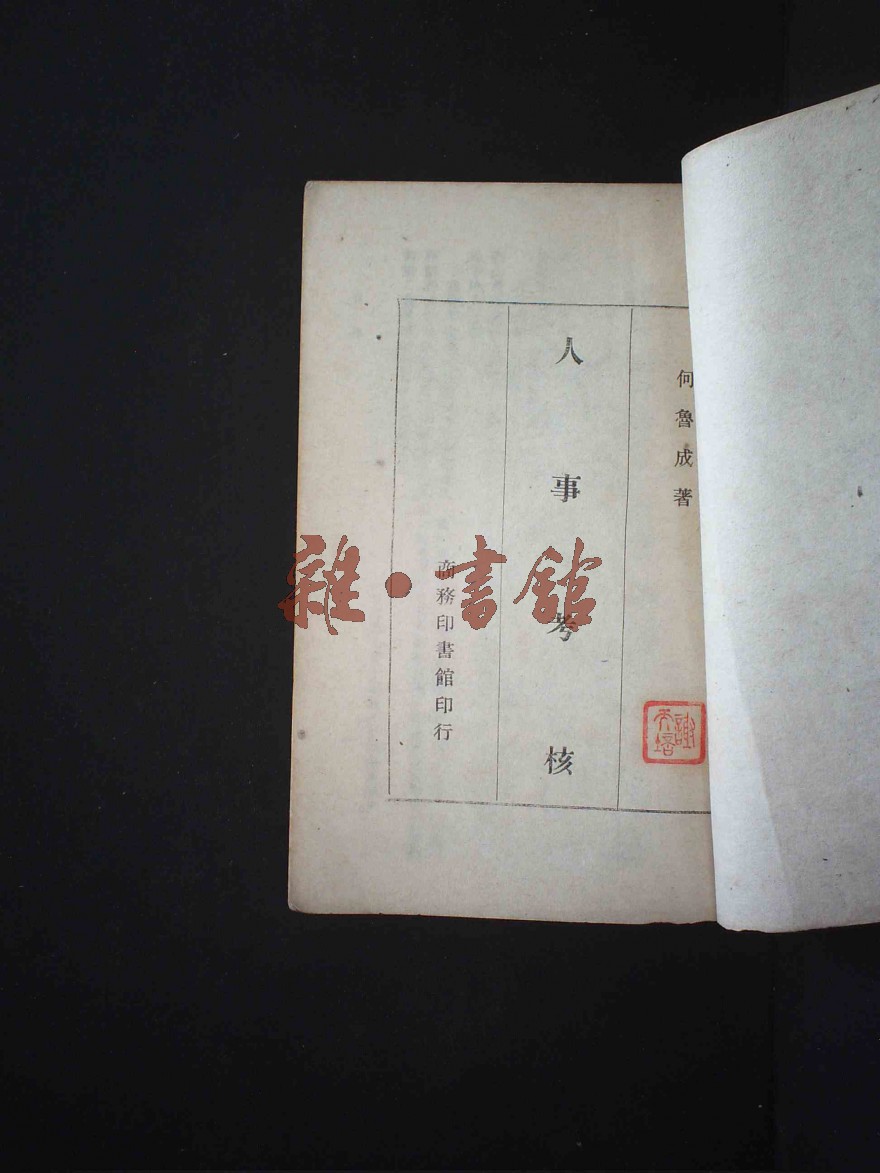 何魯成著
人事考核
商務印書館印行
雜·書館